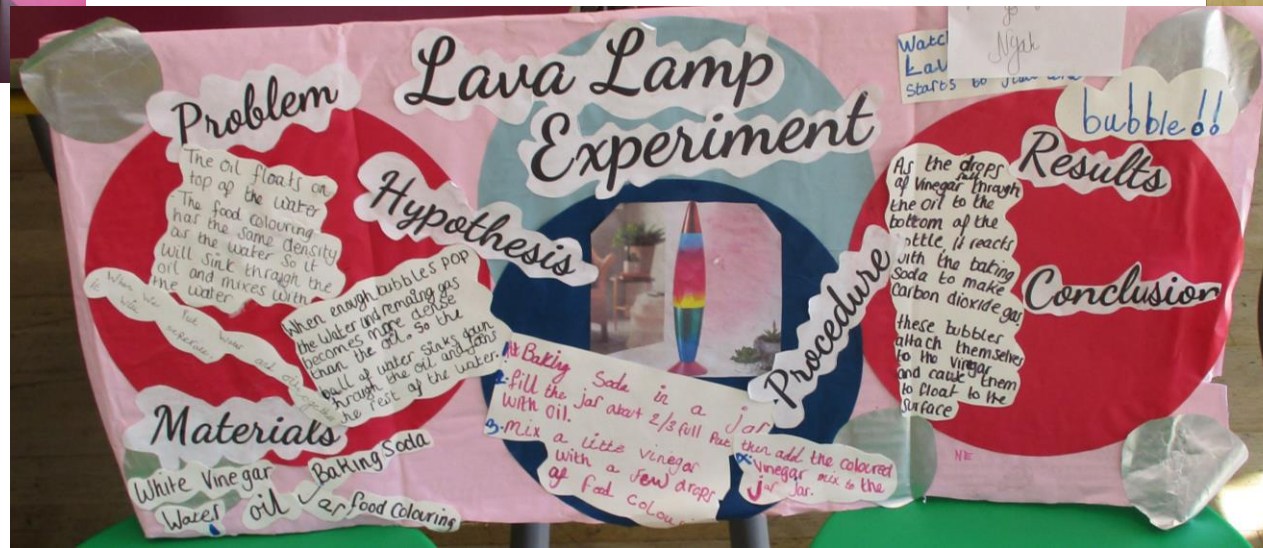 Lava Lamp
Experiment
Problem
The Oil floats on
top of the water
The food colouring
has the same density
as the water so it
will sink through the
oil and mixes with
the water
When we put water and oil together
it will seperate
Hypothesis
When enough bubbles pop
the water und remaing gas
becomes more dense
than the oil. So the
ball of water sinks down
through the oil and joins
the rest of the water.
Materials
White Vinegar
Baking Soda
Water
oil
food colouring
Baking Soda in a jar
fill the jar about 2/3 full
with oil.
3. mix a little vinegar
with a few drops
of food colou
then add the coloured
Vinegar mix to the
jar.
Procedure
Watc
Lav
Starts to
bubble!!
Nyah
As the drops
of vinegar through
the oil to the
bottom of the
ottle, it reacts
with the baking
soda to make
Carbon dioxide gas.
these bubbler
attach themselves
to the vinegar
and cause them
to float to the
surface
Results
Conclusion